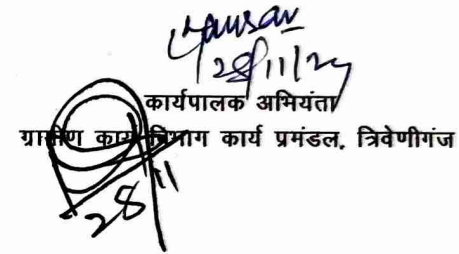 28/11/24
कार्यपालक अभियंता
ग्रामीण कार्य विभाग कार्य प्रमंडल, त्रिवेणीगंज
28/11